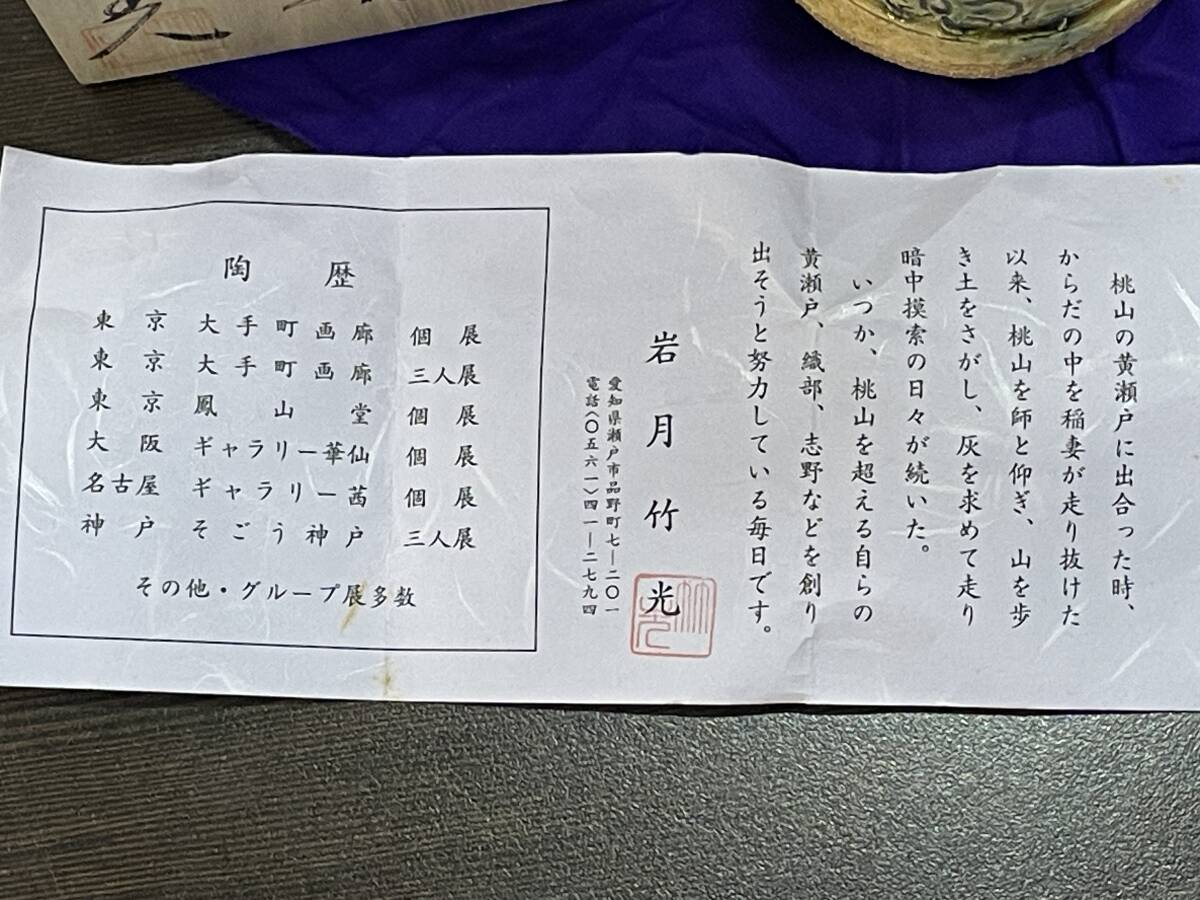 桃山の黄瀬戸に出合った時、
からだの中を稲妻が走り抜けた
以来、桃山を師と仰ぎ、山を歩
き土をさがし、灰を求めて走り
暗中摸索の日々が続いた。
いつか、桃山を超える自らの
黄瀬戸、織部、志野などを創り
出そうと努力している毎日です。
岩月竹光
竹光
愛知県瀬戸市品野町七―二〇一
電話(〇五六一)四一―二七九四
陶歴
東京 大手町画廊 個展
東京 大手町画廊 三人展
東京 鳳山堂 個展
大阪 ギャラリー華仙 個展
名古屋 ギャラリー茜 個展
神戸 そごう神戸 三人展
その他・グループ展多数
光